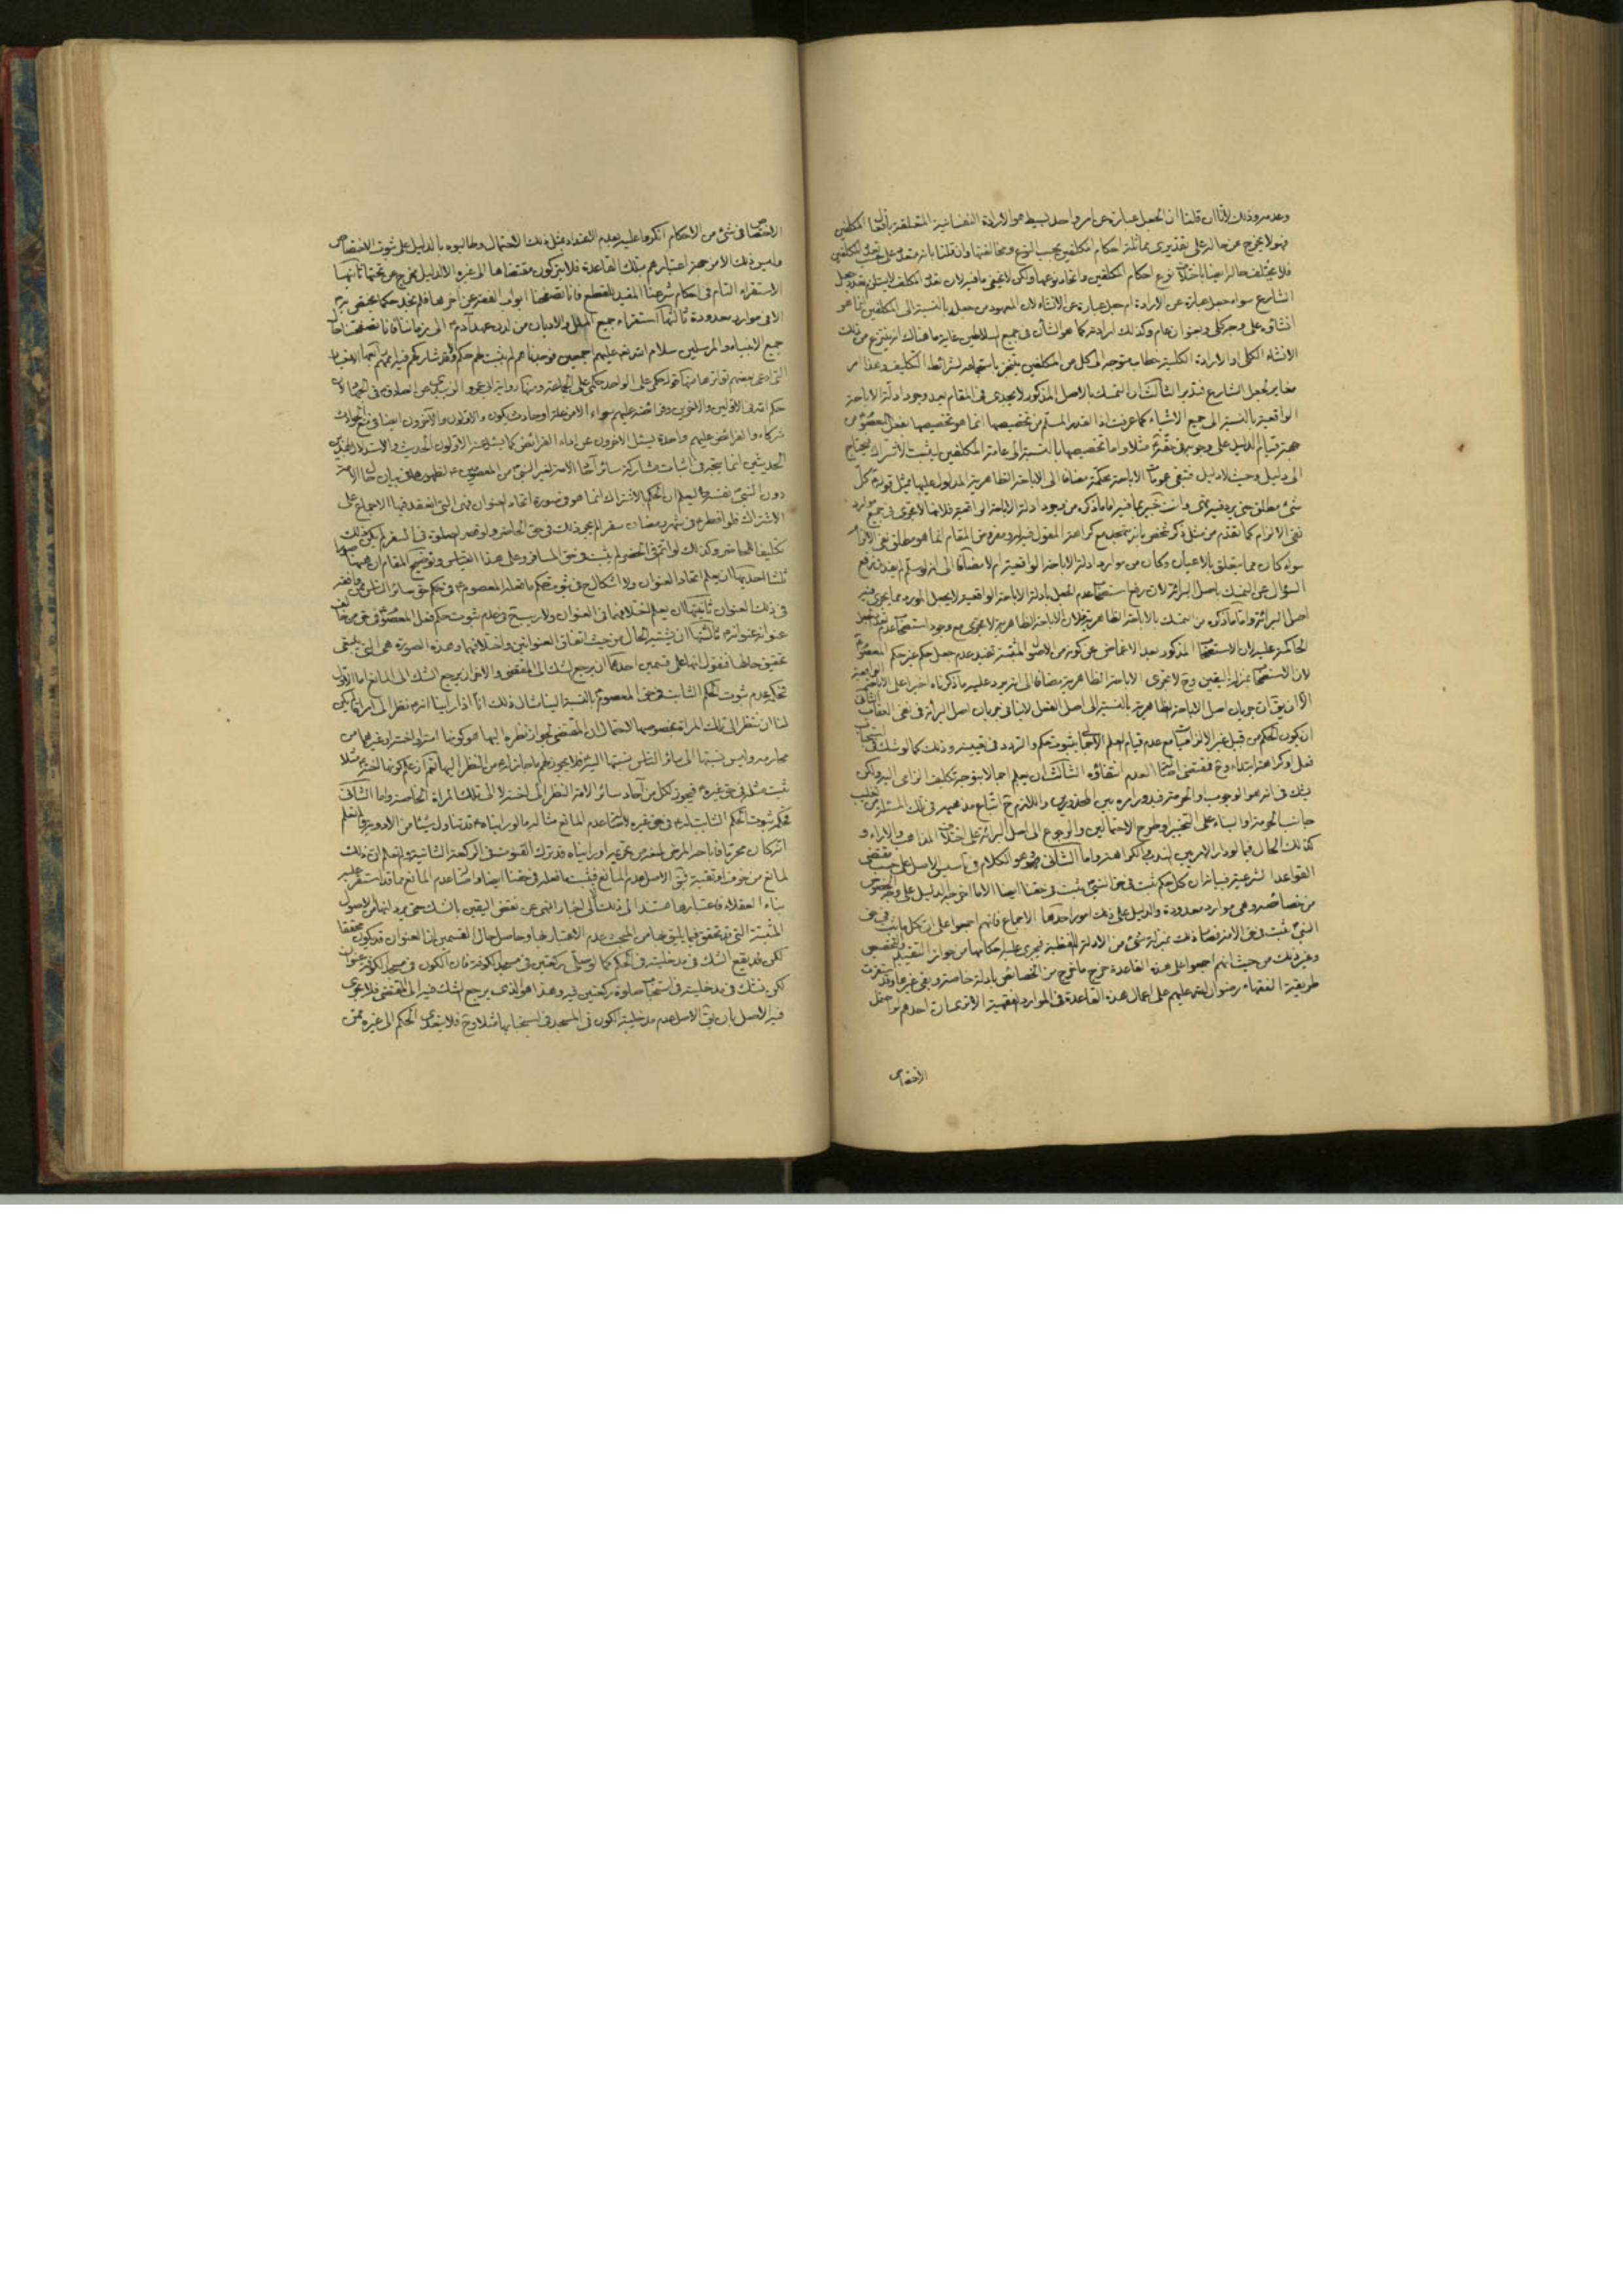 وعدمه وذلك لأنا ان قلنا ان الجعل عبارة عن امر واحد بسيط هو الارادة النفسانية المتعلقة بافعال المكلفين
فهو لا يخرج عن حاله على تقديرى مماثلة احكام المكلفين بحسب النوع ومخالفتها وان قلنا بانه متعدد على حسب تعدد المكلفين
فلا يختلف حاله ايضا باختلاف نوع احكام المكلفين واتحاد نوعها ولكن لا يخفى ما فيه لان تعدد المكلف لا يستلزم تعدد جعل
الشارع سواء جعل عبارة عن الارادة ام جعل عبارة عن الانشاء لان المعهود من جعله بالنسبة الى المكلفين انما هو
انشاؤه على وجه كلى وبعنوان عام وكذلك ارادته كما هو الشأن فى جميع السلاطين غاية ما هناك انه ينتزع من ذلك
الانشاء الكلى او الارادة الكلية خطاب متوجه الى كل من المكلفين يتنجز باستجماعه لشرائط التكليف وهذا امر
مغاير لجعل الشارع فتدبر الثالث ان التمسك بالاصل المذكور لا يجدى فى المقام بعد وجود ادلة الاباحة
الواقعية بالنسبة الى جميع الاشياء كما عرفت اذ القدر المسلم من تخصيصها انما هو تخصيصها بفعل المعصوم من
جهة قيام الدليل على وجوبه فى حقه مثلا واما تخصيصها بالنسبة الى عامة المكلفين ليثبت الاشتراك فيحتاج
الى دليل وحيث لا دليل فتبقى عمومات الاباحة محكمة مضافا الى الاباحة الظاهرية المدلول عليها بمثل قوله كل
شىء مطلق حتى يرد فيه نهى وانت خبير بما فيه اما ما ذكره من وجود ادلة الاباحة الواقعية فلانها لا تجرى فى جميع موارد
نفى الالزام كما تقدم من مثل
سواء كان مما يتعلق بالاعيان وكان من موارد ادلة الاباحة الواقعية ام لا مضافا الى انه لو سلم لم يفد فى رفع
السؤال عن التمسك باصل البرائة لان رفع استصحاب عدم الجعل بادلة الاباحة الواقعية لا يجعل المورد مما يجرى فيه
اصل البرائة واما ما ذكره من التمسك بالاباحة الظاهرية فلان الاباحة الظاهرية لا تجرى مع وجود استصحاب عدم
الحاكمة عليه لان الاستصحاب المذكور بعد الاغماض عن كونه من الاصول المثبتة تفيد عدم جعل حكم غير حكم المعصوم
لان الاستصحاب بمنزلة اليقين وح لا تجرى الاباحة الظاهرية مضافا الى انه يرد عليه ما ذكرناه اخيرا على الاباحة الواقعية
الا ان يقال ان جريان اصل الاباحة الظاهرية بالنسبة الى اصل الفعل لا ينافى جريان اصل البرائة فى نفى العقاب الثانى
ان يكون الحكم من قبل غير الالزاميات مع عدم قيام العلم الاجمالى بثبوت حكم والتردد فى تعيينه وذلك كما لو شك فى استحباب
فعل او كراهته ابتداء وح فمقتضى اصالة العدم انتفاؤه الثالث ان يعلم اجمالا بتوجه تكليف الزامى اليه ولكن
يشك فى انه هو الوجوب او الحرمة فيدور امره بين المحذورين واللازم ح اتباع مذهبهم فى تلك المسئلة من تغليب
جانب الحرمة او البناء على التخيير او طرح الاحتمالين والرجوع الى اصل البرائة على اختلاف المذاهب والاراء و
كذلك الحال فيما لو دار الامر بين الندب والكراهة واما الثانى وهو الكلام فى تأسيس الاصل على حسب مقتضى
القواعد الشرعية فبيانه ان كل حكم ثبت فى حق النبى ثبت فى حقنا ايضا الا ما اخرجه الدليل على وجه الخصوص
من خصائصه وهى موارد معدودة والدليل على ذلك امور احدها الاجماع فانهم اجمعوا على ان كل ما ثبت فى حق
النبى ثبت فى حق الامة فصار ذلك بمنزلة شىء من الادلة اللفظية فيجرى عليه احكامها من جواز التقييد والتخصيص
وغير ذلك من حيث انهم اجمعوا على هذه القاعدة خرج ما خرج من الخصائص بادلة خاصة وبقى غيرها وقد استقرت
طريقة الفقهاء رضوان الله عليهم على اعمال هذه القاعدة فى الموارد الفقهية الا ترى ان احدهم لو احتمل
الاختصاص
الاختصاص فى شىء من الاحكام انكروا عليه بعدم الاعتداد بمثل ذلك الاحتمال وطالبوه بالدليل على ثبوت الاختصاص
وليس ذلك الا من جهة اعتبارهم بتلك القاعدة فلا يتركون مقتضاها الى غيره الا لدليل يخرج عن تحتها ثانيها
الاستقراء التام فى احكام شرعنا المفيد للقطع فانا تصفحنا ابواب الفقه عن آخرها فلم نجد حكما يختص به
الا فى موارد معدودة ثالثها استقراء جميع الملل والاديان من لدن عهد آدم الى زماننا فانا تصفحنا حال
جميع الانبياء والمرسلين سلام الله عليهم اجمعين فوجدنا انهم لم يثبت لهم حكم الا وقد شاركهم فيه اممهم
التى ادعى بعضهم تواترها منها قوله حكمى على الواحد حكمى على الجماعة ومنها رواية ابى عمرو الزبيرى عن الصادق
حكم الله فى الاولين والاخرين وفرائضه عليهم سواء الا من علة او حادث يكون والاولون والاخرون ايضا فى منع الحوادث
شركاء والفرائض عليهم واحدة يسئل الاخرون عن اداء الفرائض كما يسئل عنه الاولون الحديث والاستدلال بهذين
الحديثين انما يتجه فى اثبات مشاركة سائر آحاد الامة لغير النبى من المعصومين لظهورهما فى بيان حال الامة
دون النبى نفسه ثم ليعلم ان الحكم بالاشتراك انما هو فى صورة اتحاد العنوان فهى التى انعقد فيها الاجماع على
الاشتراك فلو افطر فى شهر رمضان سفرا لم يجر ذلك فى حق الحاضر ولو قصر الصلوة فى السفر لم يكن ذلك
تكليفا للحاضر وكذلك لو اتم فى الحضر لم يثبت فى حق المسافر وعلى هذا القياس وتوضيح المقام ان هيهنا صورا
ثلثا احديها ان يعلم اتحاد العنوان ولا اشكال ح فى ثبوت حكم ما فعله المعصوم فى حق سائر الناس
فى ذلك العنوان ثانيتها ان يعلم اختلافهما فى العنوان ولا ريب ح فى عدم ثبوت حكم فعل المعصوم فى حق من خالف
عنوانه عنوانه ثالثتها ان يشتبه الحال من حيث اتفاق العنوانين واختلافهما وهذه الصورة هى التى ينبغى
تحقيق حالها فنقول انها على قسمين احدهما ان يرجع الشك الى المقتضى والاخر ان يرجع الشك الى المانع اما الاول
فحكمه عدم ثبوت الحكم الثابت فى حق المعصوم بالنسبة الينا مثال ذلك انا اذا راينا انه نظر الى امرأة لم يكن
لنا ان ننظر الى تلك المرأة بخصوصها لاحتمال ان المقتضى لجواز نظره اليها هو كونها امته او اخته او غيرهما من
محارمه وليس نسبتها الى سائر الناس نسبتها اليه فلا يجوز لهم ما جاز له من النظر اليها نعم اذ علم كونها اخته مثلا
ثبت مثله فى حق غيره فيجوز لكل من آحاد سائر الامة النظر الى اخته لا الى تلك المرأة الخاصة واما الثانى
فحكمه ثبوت الحكم الثابت له فى حق غيره لاصالة عدم المانع مثاله ما لو راينا انه قد تناول شيئا من الادوية ولم نعلم
انه كان محرما فاباحه المرض لغرض غيره او راينا انه قد ترك القنوت فى الركعة الثانية ولم نعلم ان ذلك
لمانع من خوف او تقية فان الاصل عدم المانع فيثبت ما فعله فى حقنا ايضا واصالة عدم المانع مما قد استقر عليه
بناء العقلاء فاعتبارها مستند الى ذلك لا الى اخبار النهى عن نقض اليقين بالشك حتى يرد انها من الاصول
المثبتة التى قد تحقق فيما يليق بها من المبحث عدم الاعتبار بها وحاصل حال القسمين ان العنوان قد يكون محققا
لكن قد يقع الشك فى مدخليته فى الحكم كما لو صلى ركعتين فى مسجد الكوفة فان الكون فى مسجد الكوفة عنوان
لكن نشك فى مدخليته فى استحباب صلوة ركعتين فيه وهذا هو الذى يرجع الشك فيه الى المقتضى فلا يجرى
فيه الاصل بان يقال الاصل عدم مدخلية الكون فى المسجد فى استحبابها مثلا وح فلا يتعدى الحكم الى غيره ممن